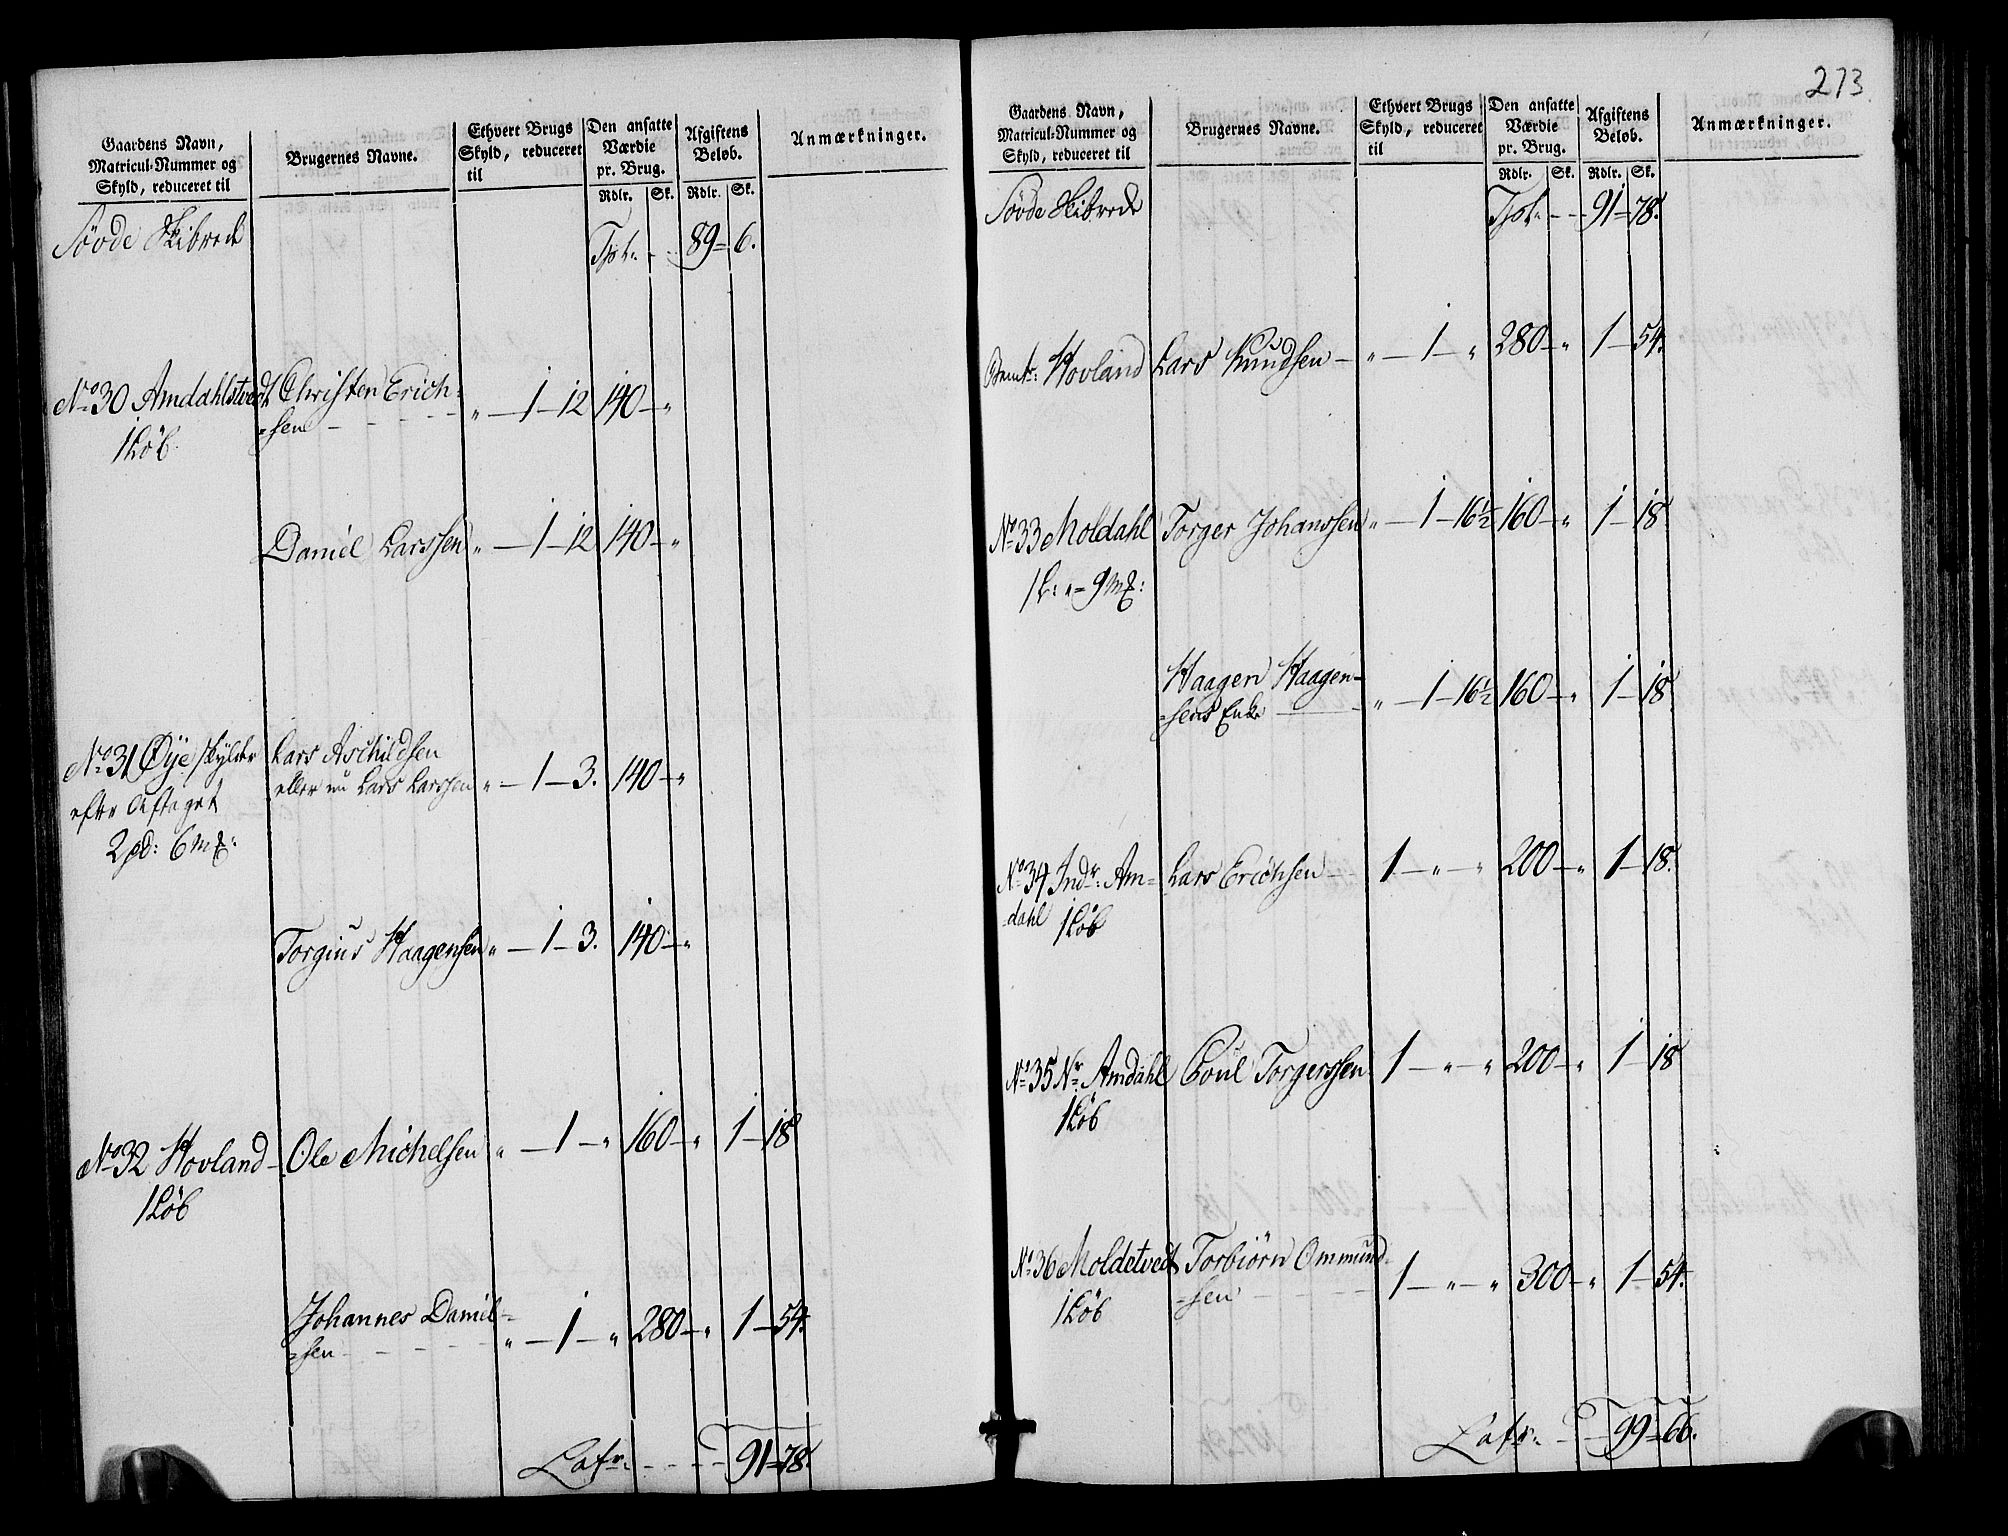 Gaardens Navn, Matricul-Nummer og Skyld, reduceret til | Brugernes Navne. | Ethvert Brugs Skyld, reduceret til | Den ansatte Værdie pr. Brug. Rdlr. Sk. | Afgiftens Beløb. Rdlr. Sk. | Anmærkninger.
Søvde Skibrede
Tpt: - - 89 = 6.
No 30 Amdahlstvedt Christen Erich=
=sen - - - - " - 1 - 12 140 - "
1 Løb
Daniel Larssen " - 1 - 12 140 - "
No 31 Øye skylder Lars Aschildsen
efter Aftaget eller nu Lars Larssen " - 1 - 3. 140 - "
2 pd: 6 mk:
Torgius Haagensen " - 1 - 3. 140 - "
No 32 Hovland - Ole Michelsen " - 1 - " 160 - " 1 - 18
1 Løb
Johannes Daniel=
=sen - - - - " - 1 - " 280 - " 1 - 54.
Latr: - - - - 91 = 78.
273.
Gaardens Navn, Matricul-Nummer og Skyld, reduceret til | Brugernes Navne. | Ethvert Brugs Skyld, reduceret til | Den ansatte Værdie pr. Brug. Rdlr. Sk. | Afgiftens Beløb. Rdlr. Sk. | Anmærkninger.
Søvde Skibrede Tpt: - - 91 = 78.
Hovland Lars Knudsen - " - 1 - " 280 - " 1 - 54.
No 33 Moldahl Torger Johanssen " - 1 - 16½ 160 - " 1 - 18
1 L: " = 9 mk:
Haagen Haagen=
=sens Enke - " - 1 - 16½ 160 - " 1 - 18
No 34 Indr: Am= Lars Erichsen - - 1 - " - " 200 - " 1 - 18.
=dahl 1 Løb
No 35 Nr: Amdahl Poul Torgerssen 1 - " - " 200 - " 1 - 18
1 Løb
No 36 Moldetvedt Torbiørn Ommund=
=sen - - - - 1 - " - " 300 - " 1 - 54.
1 Løb
Latr: - - 99 = 66.